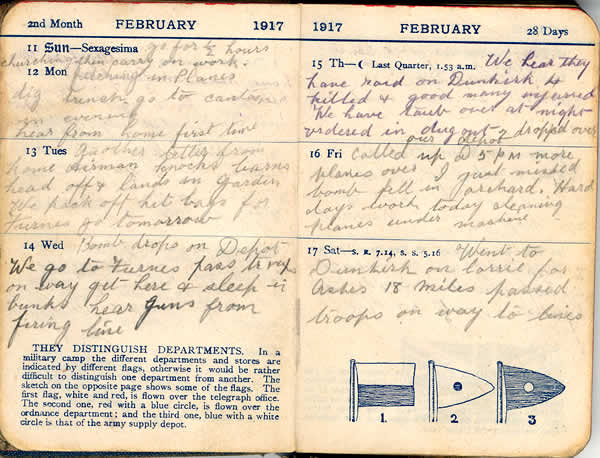 2nd Month FEBRUARY 1917
11 Sun—Sexagesima go for ½ hours
churching then carry on work.
12 Mon fetching in Planes
dig trench go to canteen
in evening
hear from home first time
13 Tues Another letter from
home airman knocks
head off & lands on Garden
We pack off kit bags for
Furnes go tomorrow
14 Wed Bomb drops on Depot
We go to Furnes pass
on way get here & sleep in
bunks hear guns from
firing line
THEY DISTINGUISH DEPARTMENTS. In a
military camp the different departments and stores are
indicated by different flags, otherwise it would be rather
difficult to distinguish one department from another. The
sketch on the opposite page shows some of the flags. The
first flag, white and red, is flown over the telegraph office.
The second one, red with a blue circle, is flown over the
ordnance department; and the third one, blue with a white
circle is that of the army supply depot.
1917 FEBRUARY 28 Days
15 Th—☾ Last Quarter, 1.53 a.m. We hear they
have raid on Dunkirk &
killed & good many injured
We have taub over at night
ordered in dug out 2 dropped over
our Depot
16 Fri Called up 5 PM more
planes over 1 just missed
bomb fell in orchard. Hard
days work today cleaning
planes under machine
17 Sat—S. R. 7.14, S. S. 5.16 Went to
Dunkirk on lorrie for
ashes 18 miles passed
troops on way to lines
1. 2 3